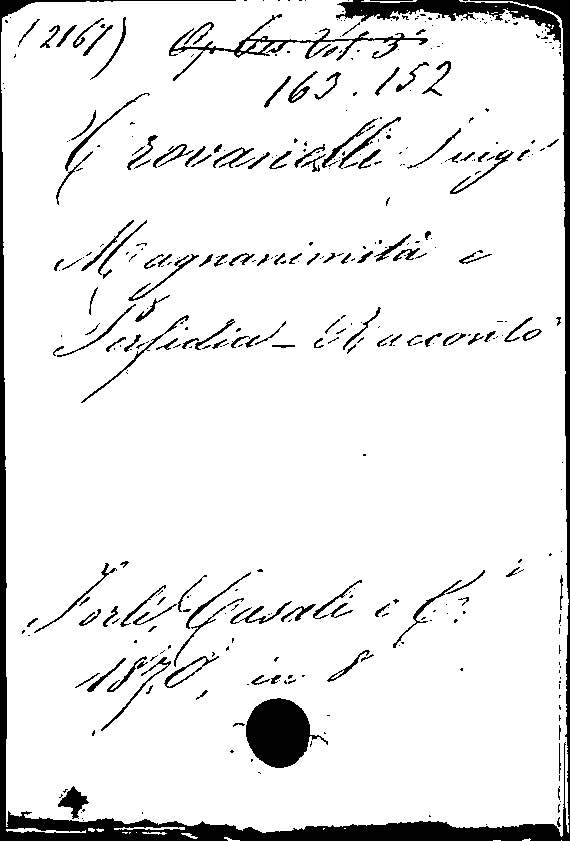 (2167) Op. Ces. Vol. 3
163.152
Trovanelli Luigi
Magnanimità e
Perfidia - Racconto
Forlì, Casali e C.i
1870, in 8